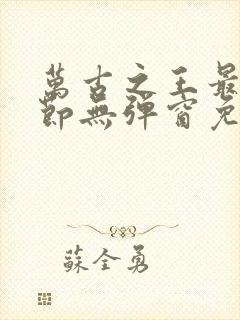 萬古之王最
節無彈窗免
蘇全勇